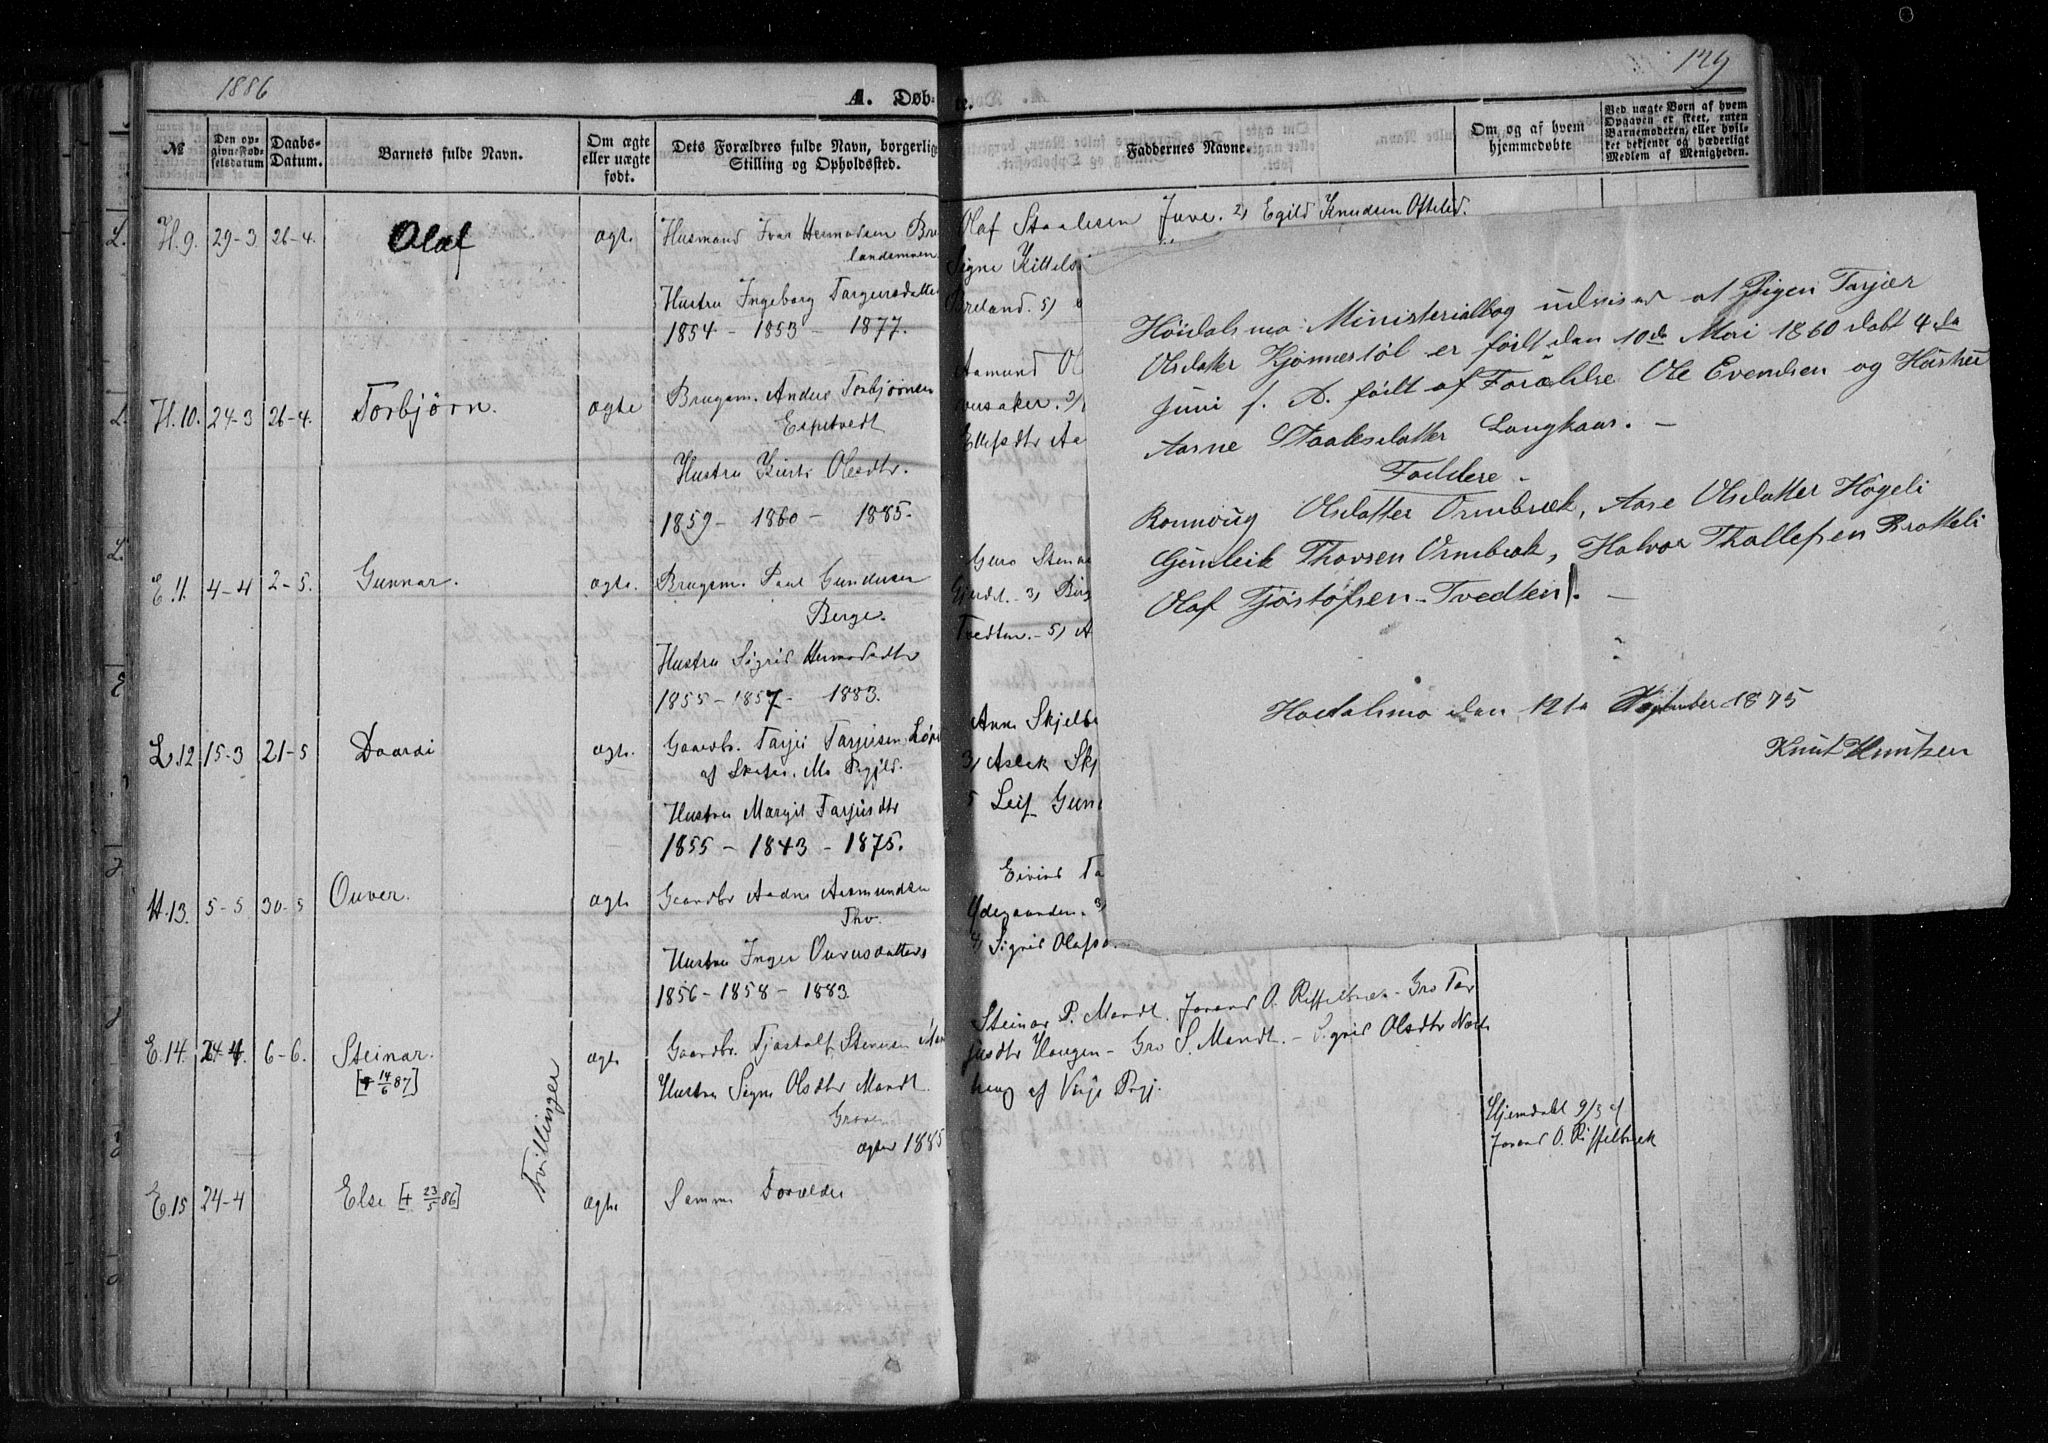 1886
129
A. Døb-
te.
№
Den op-
givne Fød-
selsdatum
Daabs-
Datum.
Barnets fulde Navn.
Om ægte
eller uægte
født.
Dets Forældres fulde Navn, borgerlig
Stilling og Opholdssted.
Faddernes Navne.
Om og af hvem
hjemmedøbte
Ved uægte Børn af hvem
Opgaven er skeet, enten
Barnemoderen, eller hvil-
ket bekjendt og hæderligt
Medlem af Menigheden.
H. 9. 29-3 26-4. Olaf ægt. Husmand Ivar Hermodsen Bre
landsmoen
Hustru Ingeborg Targeirsdatter
1854 - 1853 - 1877.
Olaf Staalesen Juve. 2, Egild Knudsen Ofteled.
Signe Kittels
Breland. 5)
H. 10. 24-3 26-4. Torbjørn. ægte Brugsm. Anders Torbjørnsen
Espetvedt
Hustru Kirsti Olesdtr.
1859 - 1860 - 1885.
Aamund Ol
versaker. 3)
Ellefsdtr Aa
E. 11. 4-4 2-5. Gunnar. ægte. Brugsm. Paul Gundersen
Berge.
Hustru Sigrid Hermodsdtr
1855 - 1857 - 1883.
Guro Stena
Gjerdet. - 3, Birg
Tvedten. - 5) A
L. 12. 15-3 21-5 Daardi ægt. Gaardbr. Tarjei Tarjeisen
af Skafsa, Mo Prgjld.
Hustru Margit Tarjeisdtr
1855 - 1843 - 1875.
Anne Skjelb
3, Aslak Skj
5 Leif Gun
H. 13. 5-5 30-5 Ouver. ægte Gaardbr Aadne Aasmundsen
Tho.
Hustru Inger Ouversdatter
1856 - 1858 - 1883
Eivind Ta
Ødegaarden. 3)
4, Sigrid Olafs
E. 14. 24-4. 6-6. Steinar. ægte Gaardbr. Tjostolf Steinsen
[+ 14/6 87]
Hustru Signe Olsdtr Mandt
Groven
ægtev 1885
Steinar P. Mandt. Jorand O. Riffelbræk - Gro Tar
jeisdtr Haugen - Gro S. Mandt. - Sigrid Olsdtr
haug af Vinje Prgj.
Tvillinger
Hjemdøbt 9/5 af
Jorand O. Riffelbræk
E. 15 24-4 Else [+ 23/5 86] ægte Samme Forældre
Høidalsmo Ministerialbog udviser at Pigen Tarjær
Olsdatter Kjønnestøl er født den 10de Mai 1860 døbt 4de
Juni s. A. født af Forældre Ole Evendsen og Hustru
Aasne Staalesdatter Langkaas. -
Faddere -
Ronnoug Olsdatter Ormbræk, Aase Olsdatter Høgeli
Gunleik Thovsen Ormbræk, Halvor Thallefsen Bratteli
Olaf Tjøstofsen Tvedten. -
Høidalsmo den 12te September 1875
Knut Knutsen